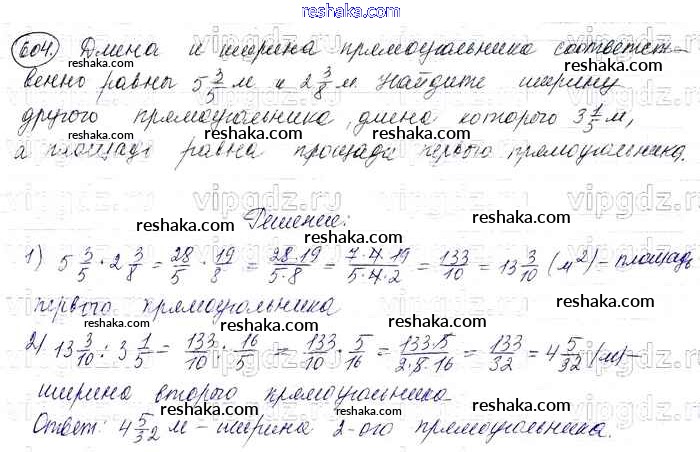 reshaka.com
604. Длина и ширина прямоугольника соответст-
венно равны 5 3/5 м и 2 3/8 м. Найдите ширину
другого прямоугольника, длина которого 3 1/5 м,
а площадь равна площади первого прямоугольника.
Решение:
1) 5 3/5 · 2 3/8 = 28/5 · 19/8 = 28·19/5·8 = 7·4·19/5·4·2 = 133/10 = 13 3/10 (м²) – площадь
первого прямоугольника
2) 13 3/10 : 3 1/5 = 133/10 : 16/5 = 133/10 · 5/16 = 133·5/2·8·16 = 133/32 = 4 5/32 (м) –
ширина второго прямоугольника
Ответ: 4 5/32 м – ширина 2-ого прямоугольника.
reshaka.com
vipgdz.com